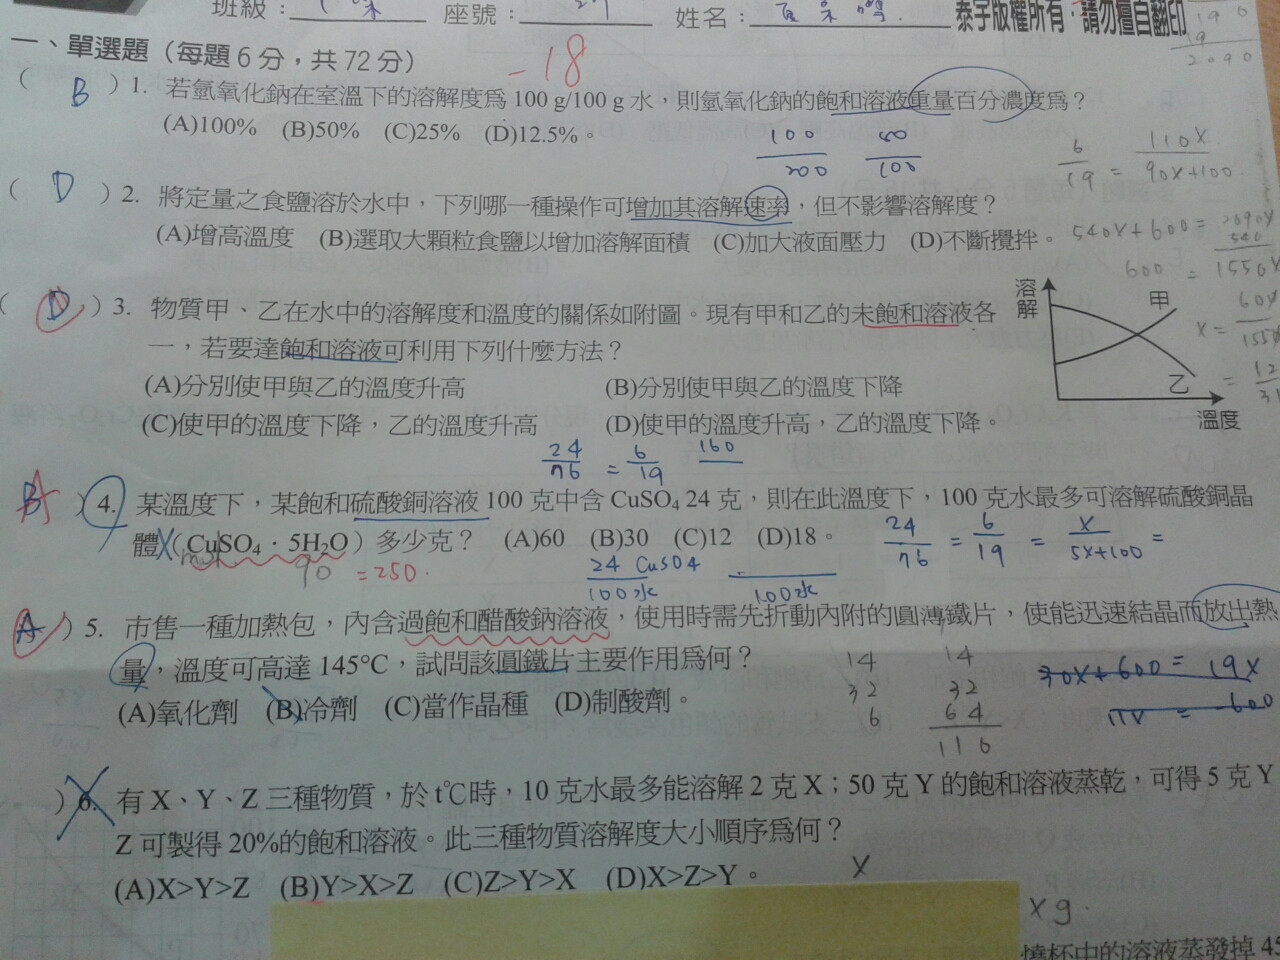 班級： 座號： 姓名： 泰宇版權所有，請勿擅自翻印
一、單選題（每題6分，共72分） -18
（ B ）1. 若氫氧化鈉在室溫下的溶解度為 100 g/100 g 水，則氫氧化鈉的飽和溶液重量百分濃度為？
(A)100% (B)50% (C)25% (D)12.5%。
100/200 /100
6/19 = 110X/90X+100
（ D ）2. 將定量之食鹽溶於水中，下列哪一種操作可增加其溶解速率，但不影響溶解度？
(A)增高溫度 (B)選取大顆粒食鹽以增加溶解面積 (C)加大液面壓力 (D)不斷攪拌。
540X+600 = 2090X
540
600 = 1550X
（ D ）3. 物質甲、乙在水中的溶解度和溫度的關係如附圖。現有甲和乙的未飽和溶液各
一，若要達飽和溶液可利用下列什麼方法？
(A)分別使甲與乙的溫度升高 (B)分別使甲與乙的溫度下降
(C)使甲的溫度下降，乙的溫度升高 (D)使甲的溫度升高，乙的溫度下降。
溶解
甲
乙
溫度
24/76 = 6/19 160
）4. 某溫度下，某飽和硫酸銅溶液 100 克中含 CuSO₄ 24 克，則在此溫度下，100 克水最多可溶解硫酸銅晶
體（CuSO₄．5H₂O）多少克？ (A)60 (B)30 (C)12 (D)18。
24/76 = 6/19 = X/5X+100 =
90 =250.
24 CuSO4/100水 /100水
）5. 市售一種加熱包，內含過飽和醋酸鈉溶液，使用時需先折動內附的圓薄鐵片，使能迅速結晶而放出熱
量，溫度可高達 145℃，試問該圓鐵片主要作用為何？
(A)氧化劑 (B)冷劑 (C)當作品種 (D)制酸劑。
14
32
6
14
32
64
116
30X+600 = 19X
11X = -600
）6. 有 X、Y、Z 三種物質，於 t℃時，10 克水最多能溶解 2 克 X；50 克 Y 的飽和溶液蒸乾，可得 5 克 Y
Z 可製得 20%的飽和溶液。此三種物質溶解度大小順序為何？
(A)X>Y>Z (B)Y>X>Z (C)Z>Y>X (D)X>Z>Y。
X
X g.
燒杯中的溶液蒸發掉 45